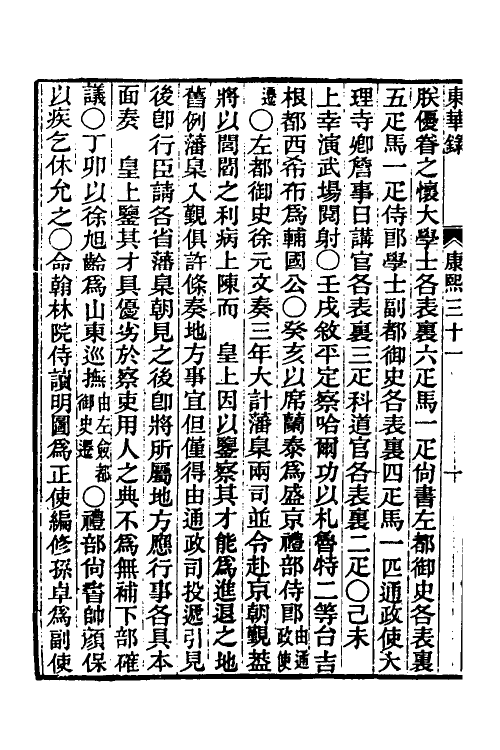 東華錄 康熙三十一 十
朕優眷之懷大學士各表裏六疋馬一疋尙書左都御史各表裏
五疋馬一疋侍郎學士副都御史各表裏四疋馬一匹通政使大
理寺卿詹事日講官各表裏三疋科道官各表裏二疋○己未
上幸演武場閱射○壬戌敘平定察哈爾功以札魯特二等台吉
根都西希布爲輔國公○癸亥以席蘭泰爲盛京禮部侍郎由通政使
遷○左都御史徐元文奏三年大計藩臬兩司並令赴京朝覲蓋
將以閭閻之利病上陳而 皇上因以鑒察其才能爲進退之地
舊例藩臬入覲俱許條奏地方事宜但僅得由通政司投遞引見
後卽行臣請各省藩臬朝見之後卽將所屬地方應行事各具本
面奏 皇上鑒其才具優劣於察吏用人之典不爲無補下部確
議○丁卯以徐旭齡爲山東巡撫由左僉都御史遷○禮部尙書帥顏保
以疾乞休允之○命翰林院侍讀明圖爲正使編修孫卓爲副使